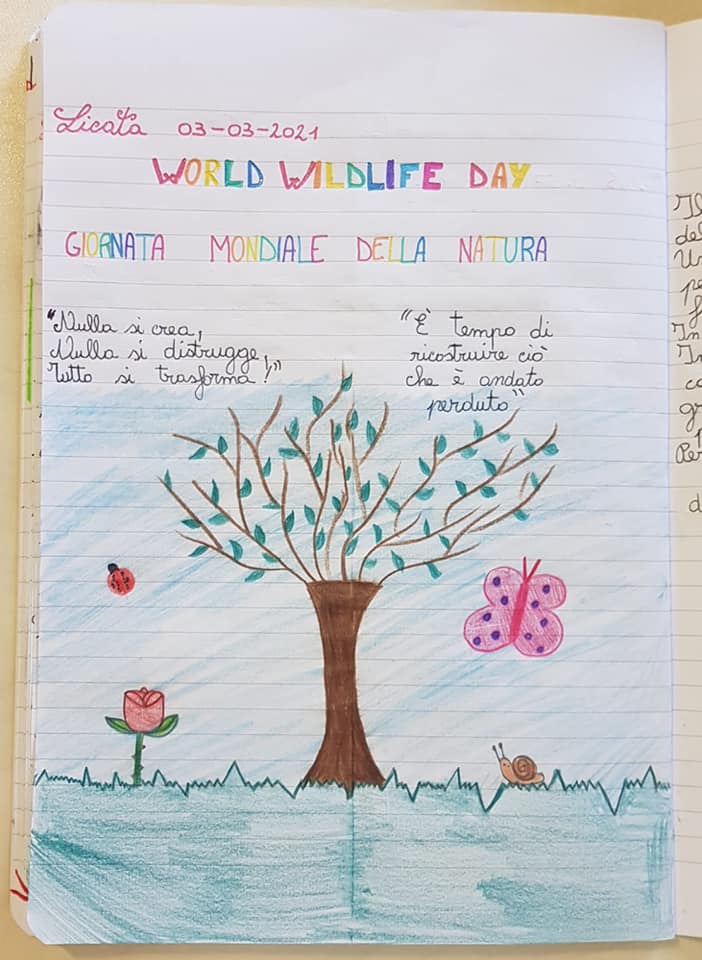 Licata 03-03-2021
WORLD WILDLIFE DAY
GIORNATA MONDIALE DELLA NATURA
"Nulla si crea,
Nulla si distrugge,
Tutto si trasforma!"
"È tempo di
ricostruire ciò
che è andato
perduto"
Il
del
U
pe
In
In
co
gr
Per
d